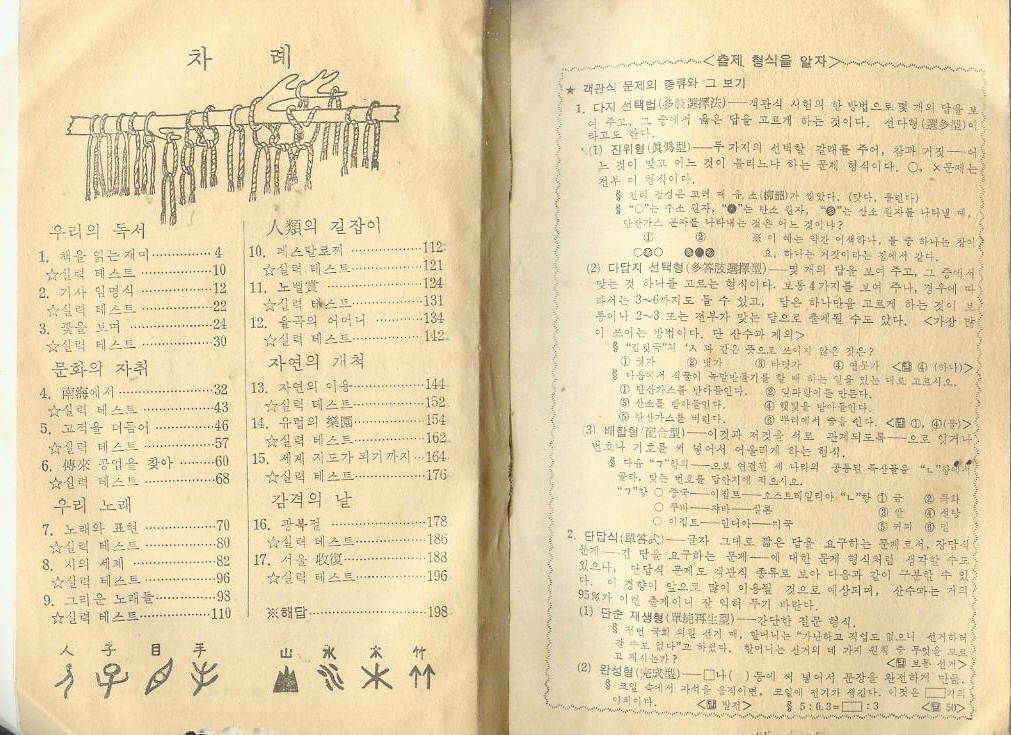 차 례
우리의 독서
1. 책을 읽는 재미 4
☆실력 테스트 10
2. 기사 임명식 12
☆실력 테스트 22
3. 꽃을 보며 24
☆실력 테스트 30
문화의 자취
4. 南海에서 32
☆실력 테스트 43
5. 고적을 더듬어 46
☆실력 테스트 57
6. 傳來 공업을 찾아 60
☆실력 테스트 68
우리 노래
7. 노래와 표현 70
☆실력 테스트 80
8. 시의 세계 82
☆실력 테스트 96
9. 그리운 노래들 98
☆실력 테스트 110
人類의 길잡이
10. 페스탈로찌 112
☆실력 테스트 121
11. 노벨賞 124
☆실력 테스트 131
12. 율곡의 어머니 134
☆실력 테스트 142
자연의 개척
13. 자연의 이용 144
☆실력 테스트 152
14. 유럽의 樂園 154
☆실력 테스트 162
15. 세계 지도가 되기까지 164
☆실력 테스트 176
감격의 날
16. 광복절 178
☆실력 테스트 186
17. 서울 收復 183
☆실력 테스트 196
※해답 198
人 子 目 手 山 水 木 竹
<출제 형식을 알자>
★ 객관식 문제의 종류와 그 보기
1. 다지 선택법(多肢選擇法)——객관식 시험의 한 방법으로 몇 개의 답을 보
여 주고, 그 중에서 옳은 답을 고르게 하는 것이다. 선다형(選多型)이
라고도 한다.
(1) 진위형(眞僞型)——두 가지의 선택할 갈래를 주어, 참과 거짓——어
느 것이 맞고 어느 것이 틀리느냐 하는 문제 형식이다. ○, ×문제는
전부 이 형식이다.
§ 천리 장성은 고려 때 유 소(柳韶)가 쌓았다. (맞다, 틀린다)
§ "○"는 수소 원자, "●"는 탄소 원자, "◍"는 산소 원자를 나타낼 때,
탄산가스 분자를 나타내는 것은 어느 것이냐?
① ② ※ 이 예는 약간 어색하나, 둘 중 하나는 참이
요, 하나는 거짓이라는 점에서 같다.
(2) 다답지 선택형(多答肢選擇型)——몇 개의 답을 보여 주고, 그 중에서
맞는 것 하나를 고르는 형식이다. 보통 4가지를 보여 주나, 경우에 따
라서는 3~6가지도 될 수 있고, 답은 하나만을 고르게 하는 것이 보
통이나 2~3 또는 전부가 맞는 답으로 출제될 수도 있다. <가장 많
이 쓰이는 방법이다. 단 산수과 제외>
§ "김칫국"의 'ㅅ'과 같은 뜻으로 쓰이지 않은 것은?
① 젓가 ② 냇가 ③ 바닷가 ④ 엿듯가 <답 ④ (하나)>
§ 다음에서 식물이 녹말만들기를 할 때 하는 일을 있는 대로 고르시오.
① 탄산가스를 받아들인다. ② 잎파랑이를 만든다.
③ 산소를 받아들인다. ④ 햇빛을 받아들인다.
⑤ 탄산가스를 버린다. ⑥ 뿌리에서 숨을 쉰다. <답 ①, ④(둘)>
3) 배합형(配合型)——이것과 저것을 서로 관계되도록——으로 잇거나
번호나 기호를 써 넣어서 어울리게 하는 형식.
§ 다음 "ㄱ"항의——으로 연결된 세 나라의 공통된 특산물을 "ㄴ"항에서
골라, 맞는 번호를 답안지에 적으시오.
"ㄱ"항 ○ 중국——이집트——오스트레일리아 "ㄴ"항 ① 금 ② 목화
○ 쿠바——쟈바——실론 ③ 쌀 ④ 석탄
○ 이집트——인디아——미국 ⑤ 커피 ⑥ 밀
2. 단답식(單答式)——글자 그대로 짧은 답을 요구하는 문제로서, 장답식
문제——긴 답을 요구하는 문제——에 대한 문제 형식처럼 생각할 수도
있으나, 단답식 문제도 객관식 종류로 보아 다음과 같이 구분할 수 있
다. 이 경향이 앞으로 많이 이용될 것으로 예상되며, 산수과는 거의
95%가 이런 출제이니 잘 익혀 두기 바란다.
(1) 단순 재생형(單純再生型)——간단한 질문 형식.
§ 전번 국회 의원 선거 때, 할머니는 "가난하고 직업도 없으니 선거하러
갈 수도 없다"고 하셨다. 할머니는 선거의 네 가지 원칙 중 무엇을 모르
고 계시는가? <답 보통 선거>
(2) 완성형(完成型)——□나( ) 등에 써 넣어서 문장을 완전하게 만듦.
§ 코일 속에서 자석을 움직이면, 코일에 전기가 생긴다. 이것은 □기의
이치이다. <답 발전> § 5 : 6.3=□ : 3 <답 50>